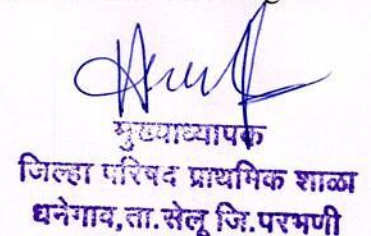 मुख्याध्यापक
जिल्हा परिषद प्राथमिक शाळा
धनेगाव,ता.सेलू जि.परभणी